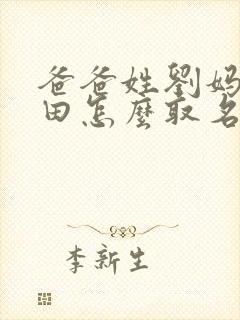 爸爸姓劉媽
田怎麼取名
李新生